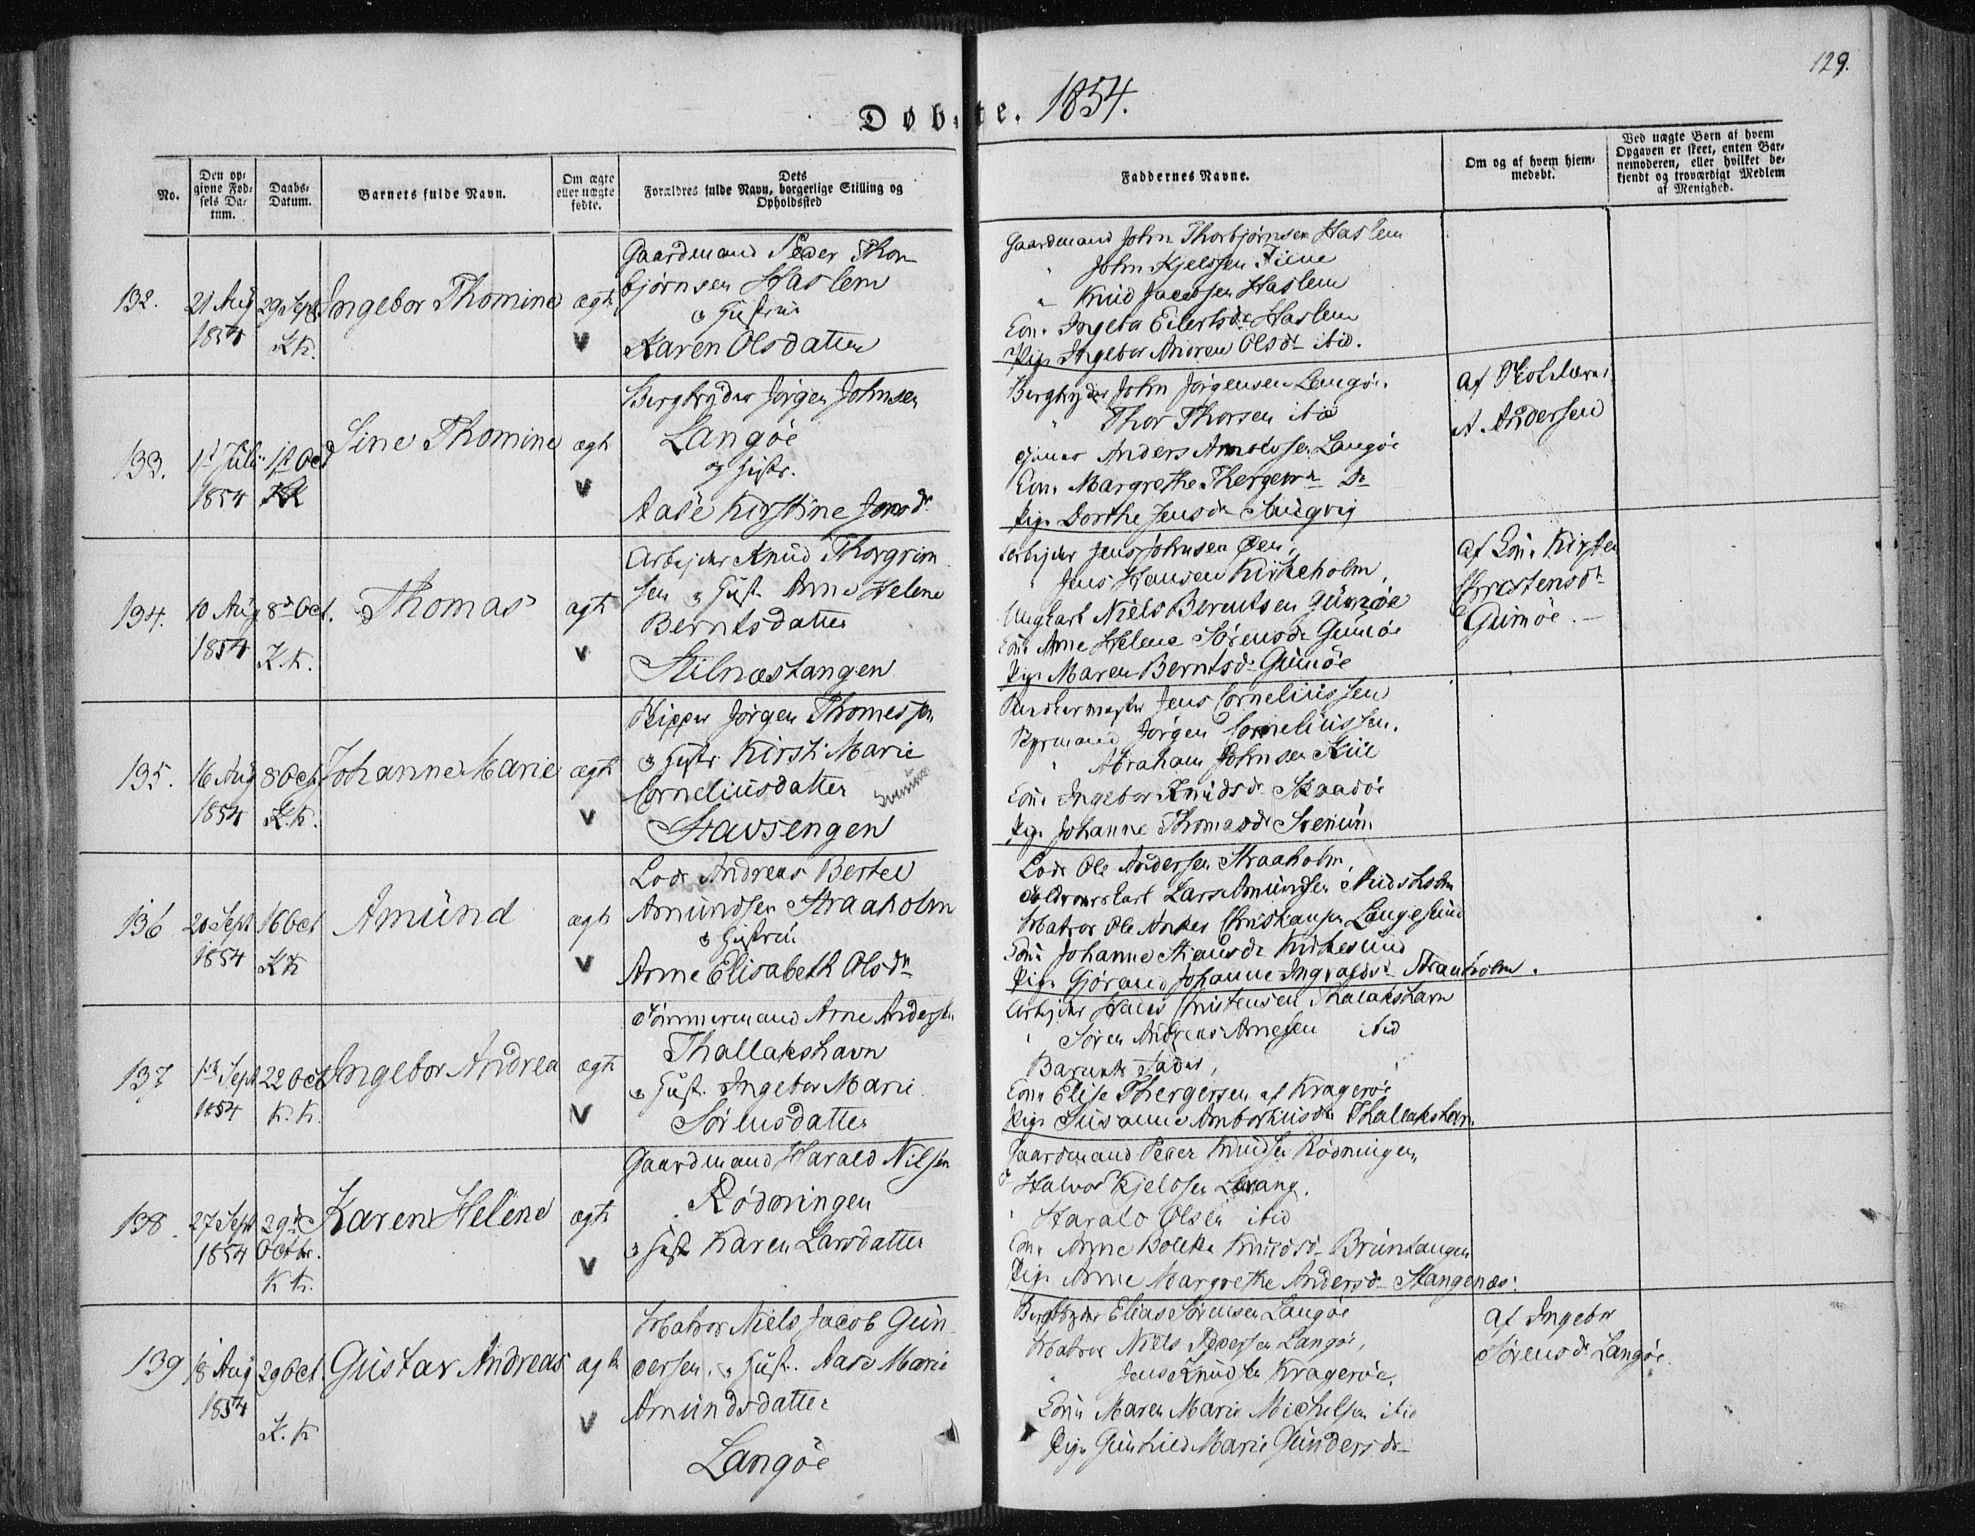 129.
Døbte. 1854.
No.
Den op-
givne Fød-
sels Da-
tum.
Daabs-
Datum.
Barnets fulde Navn.
Om ægte
eller uægte
fødte.
Dets
Forældres fulde Navn, borgerlige Stilling og
Opholdssted
Faddernes Navne.
Om og af hvem hjem-
medøbt.
Ved uægte Børn af hvem
Opgaven er skeet, enten Bar-
nemoderen, eller hvilket be-
kjendt og troværdigt Medlem
af Menighed.
132.
21 Aug
1854
29 Sept
K.K.
Ingebor Thomine
ægte
v
Gaardmand Peder Thor
bjørnsen Haslem
& Hustrue
Karen Olsdatter
Gaardmand John Thorbjørnsen Haslem
" John Kjelssen
" Knud Jacobsen Haslem
Kone Ingebor Eilertsdr Haslem
Pige Ingebor Andrea Olsdr ibid.
133.
1st Juli
1854
1st Oct
Sine Thomine
ægte
v
Bergbryder Jørgen Johnsen
Langøe
og Hustr.
Aase Kirstine Jonsdr
Bergbryder John Jørgensen Langøe
" Thor Thorsen ibid
Anders Arnoldsen Langøe
Kone Margrethe Thorgersen Do
Pige Dorthe Jensdr Sandvig
af Skolelærer
A Andersen
134.
10 Aug
1854
8d Oct.
K.K.
Thomas
ægte
v
Arbejder Knud Thorgrim
sen & Hust. Anne Helene
Berntsdatter
Stilnæstangen
Arbejder Jens Johnsen Øen,
" Jens Hansen Kirkeholm,
Ungkarl Niels Berentsen Gumøe
Kone Anne Helene Sørensdr Gumøe
Pige Maren Berntsdr Gumøe
af Kone Kirsten
Christensdr
Gumøe.
135.
16 Aug
1854
8 Oct.
K.K.
Johanne Marie
ægte
v
Skipper Jørgen Thomessen
& Hustr Kirsti Marie
Corneliusdatter
Stavsengen
Jens Corneliussen
Styrmand Jørgen Corneliussen.
" Abraham Johnsen Kiil
Kone Ingebor Knudsdr Skaadøe
Pige Johanne Thomasdr Stenum
136
20 Sept
1854
16 Oct
K.K
Amund
ægte
v
Lods Andreas Bertel
Amundsen Straaholm
& Hustrue
Anne Elisabeth Olsdr
Lods Ole Andersen Straaholm,
Lars Amundsen
Matros Ole Christiansen Langesund
Kone Johanne Kirkesund
Pige Gjøran Johanne Ingvaldsdr Straaholm.
137
1st Sept
1854
22 Oct
K.K.
Ingebor Andrea
ægte
v
Tømmermand Arne Andersen
Thallakshavn
& Hust. Ingebor Marie
Sørensdatter
Arbejder Hans Christensen Thalakshavn
" Søren Andreas Arnesen ibid
Barnets Fader,
Kone Elise Thergersen af Kragerøe
Pige Susanne Thallakshavn
138.
27 Sept
1854
29de
Octbr.
K.K.
Karen Helene
ægte
v
Gaardmand Harald Nilsen
Rødmingen
& Hust Karen Larsdatter
Gaardmand Peder Knudsen Rødmingen,
Halvor Kjeldsen Levang.
" Harald Olsen ibid
Kone Anne Knudsdr Bruntangen
Pige Anne Margrethe Andersdr Stangenæs.
139
18 Aug
1854
29 Oct.
K.K
Gustav Andreas
ægte
v
Matros Niels Jacob Gun
dersen, & Hust. Aase Marie
Amundsdatter
Langøe
Bergbryder Elias Sørensen Langøe
Matros Niels Pedersen Langøe,
" Jens Knudsen Kragerøe,
Kone Maren Marie Michelsen ibid
Pige Gunhild Marie Gundersdr
af Ingebor
Sørensdr Langøe.